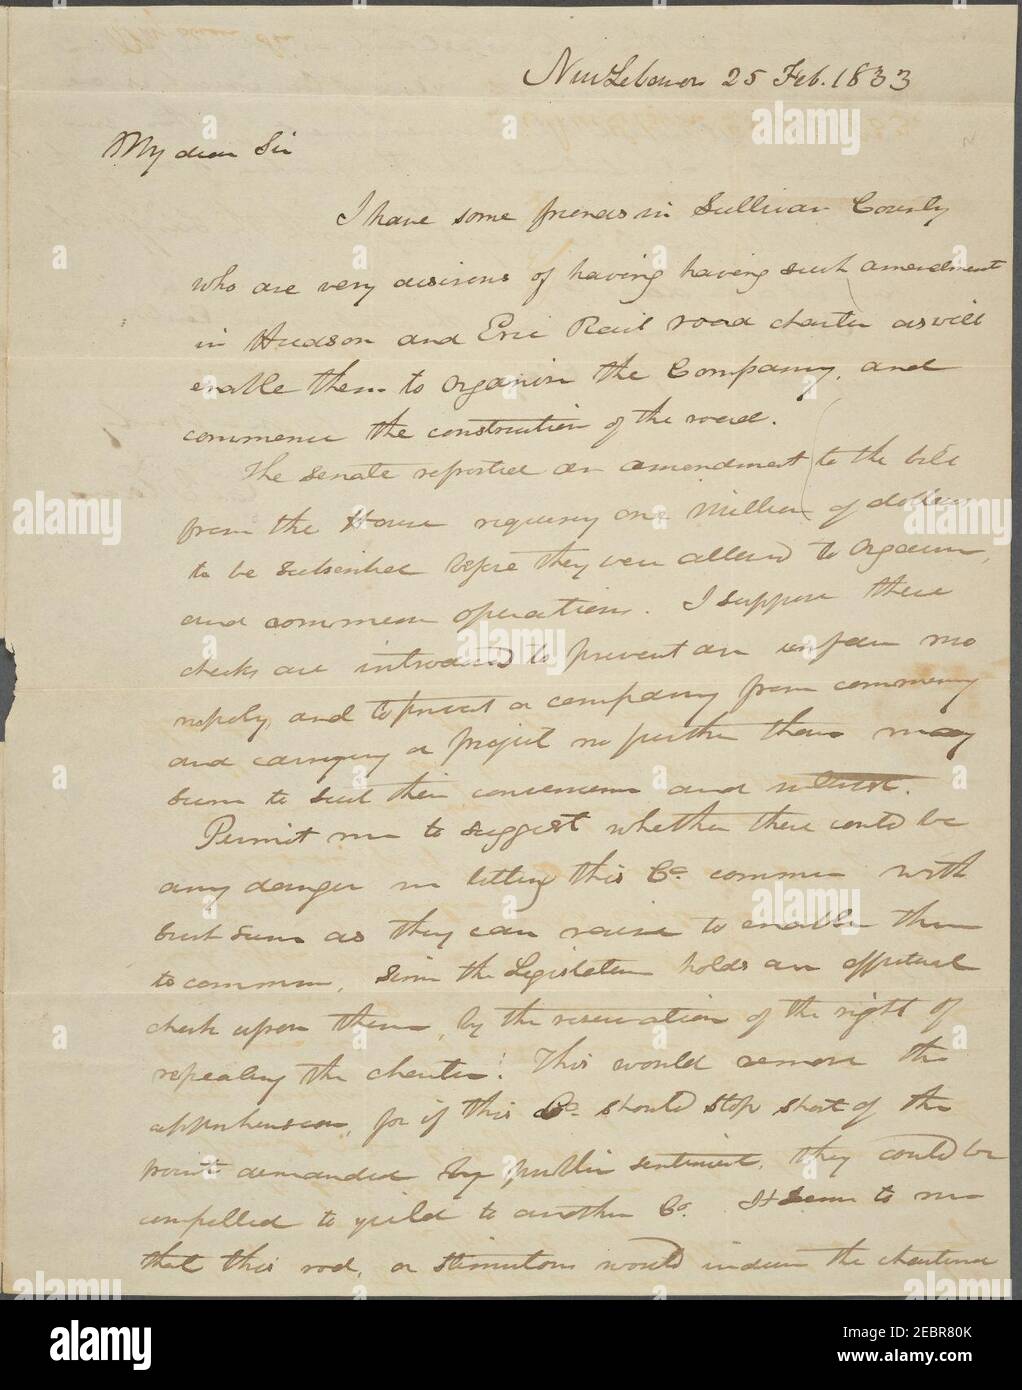 New Lebanon 25 Feb. 1833
My dear Sir
I have some friends in Sullivan County
who are very desirous of having having such amendment
in Hudson and Erie Rail road charter as will
enable them to organise the Company, and
commence the construction of the road.
The Senate reported an amendment to the bill
from the House requiring one Million of dollars
to be subscribed before they were allowed to organise,
and commence operations. I suppose these
checks are introduced to prevent an unfair mo
nopoly, and to prevent a company from commencing
and carrying a project no further than may
seem to suit their convenience and interest.
Permit me to suggest whether there could be
any danger in letting this Co. commence with
such sum as they can raise to enable them
to commence, since the Legislature holds an effectual
check upon them, by the reservation of the right of
repealing the charter. This would remove the
apprehension, for if this Co. should stop short of the
point demanded by public sentiment, they could be
compelled to yield to another Co. It seems to me
that this rod, or stimulous would induce the chartered
alamy
Image ID: 2EBR80K
www.alamy.com